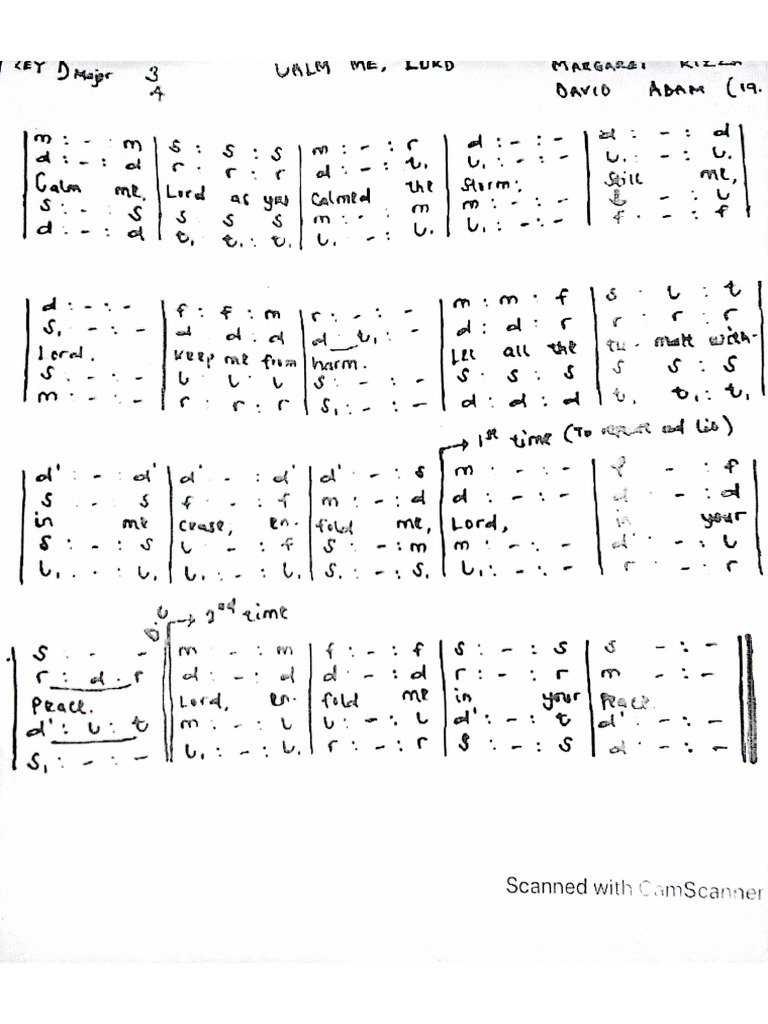 KEY D Major 3/4 CALM ME, LORD MARGARET RIZZA
DAVID ADAM (19.
| m : - : m | s : s : s | m : - : r | d : - : - | d : - : d |
| d : - : d | r : r : r | d : - : t, | l, : - : - | l, : - : l, |
Calm me, Lord as you calmed the storm; still me,
| s : - : s | s s s | m : - : m | m : - : - | - : l |
| d : - : d | t, : t, : t, | l, - : l, | l, : - : - | f : - : f |
| d : - : - | f : f : m | r : - : - | m : m : f | s : l : t |
| s, : - : - | d d : d | d t, : - | d : d : r | r : r : r |
Lord. keep me from harm. Let all the tu- mult with-
| s : - : - | l : l : l | s : - : - | s : s : s | s s : s |
| m : - : - | r : r : r | s, : - : - | d : d : d | t, t, : t, |
→ 1st time (To repeat ad lib)
| d' : - : d' | d' - : d' | d' - : s | m : - : - | f - : f |
| s - s | f - : f | m : - : d | d : - : - | d - : d |
in me cease, en- fold me, Lord, in your
| s : - : s | l - : f | s - : m | m : - : - | d' - : l |
| l, : - : l, | l, : - : l, | s, : - : s, | l, : - : - | r - : r |
D.C → 2nd time
| s : - : - | m - : m | f : - : f | s : - : s | s - : - |
| r : d . r | d : - : d | d - : d | r : - : r | m - : - |
Peace. Lord, en- fold me in your Peace.
| d' : l : t | m : - : l | l : - : l | d' : - : t | d' : - : - |
| s, : - : - | l, : - : l, | r : - : r | s : - : s | d : - : - |
Scanned with CamScanner